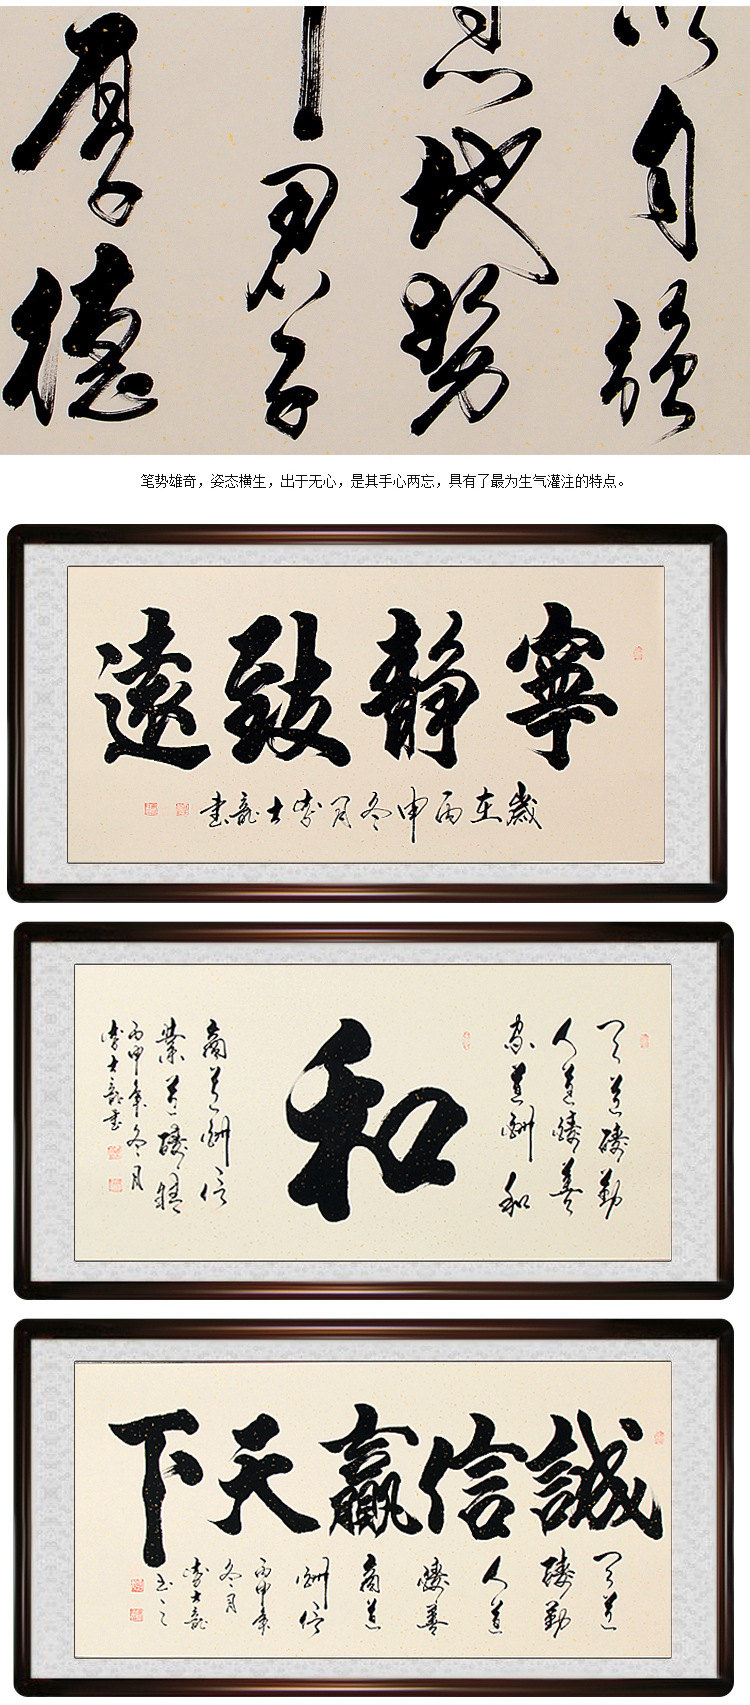 自強
息地势
君子
厚德
笔势雄奇，姿态横生，出于无心，是其手心两忘，具有了最为生气灌注的特点。
寧靜致遠
歲在丙申冬月李士龍書
天道酬勤
人道酬善
家道酬和
和
商道酬信
業道酬精
丙申年冬月
李士龍書
誠信贏天下
天道
酬勤
人道
酬善
商道
酬信
丙申年
冬月
李士龍
书之